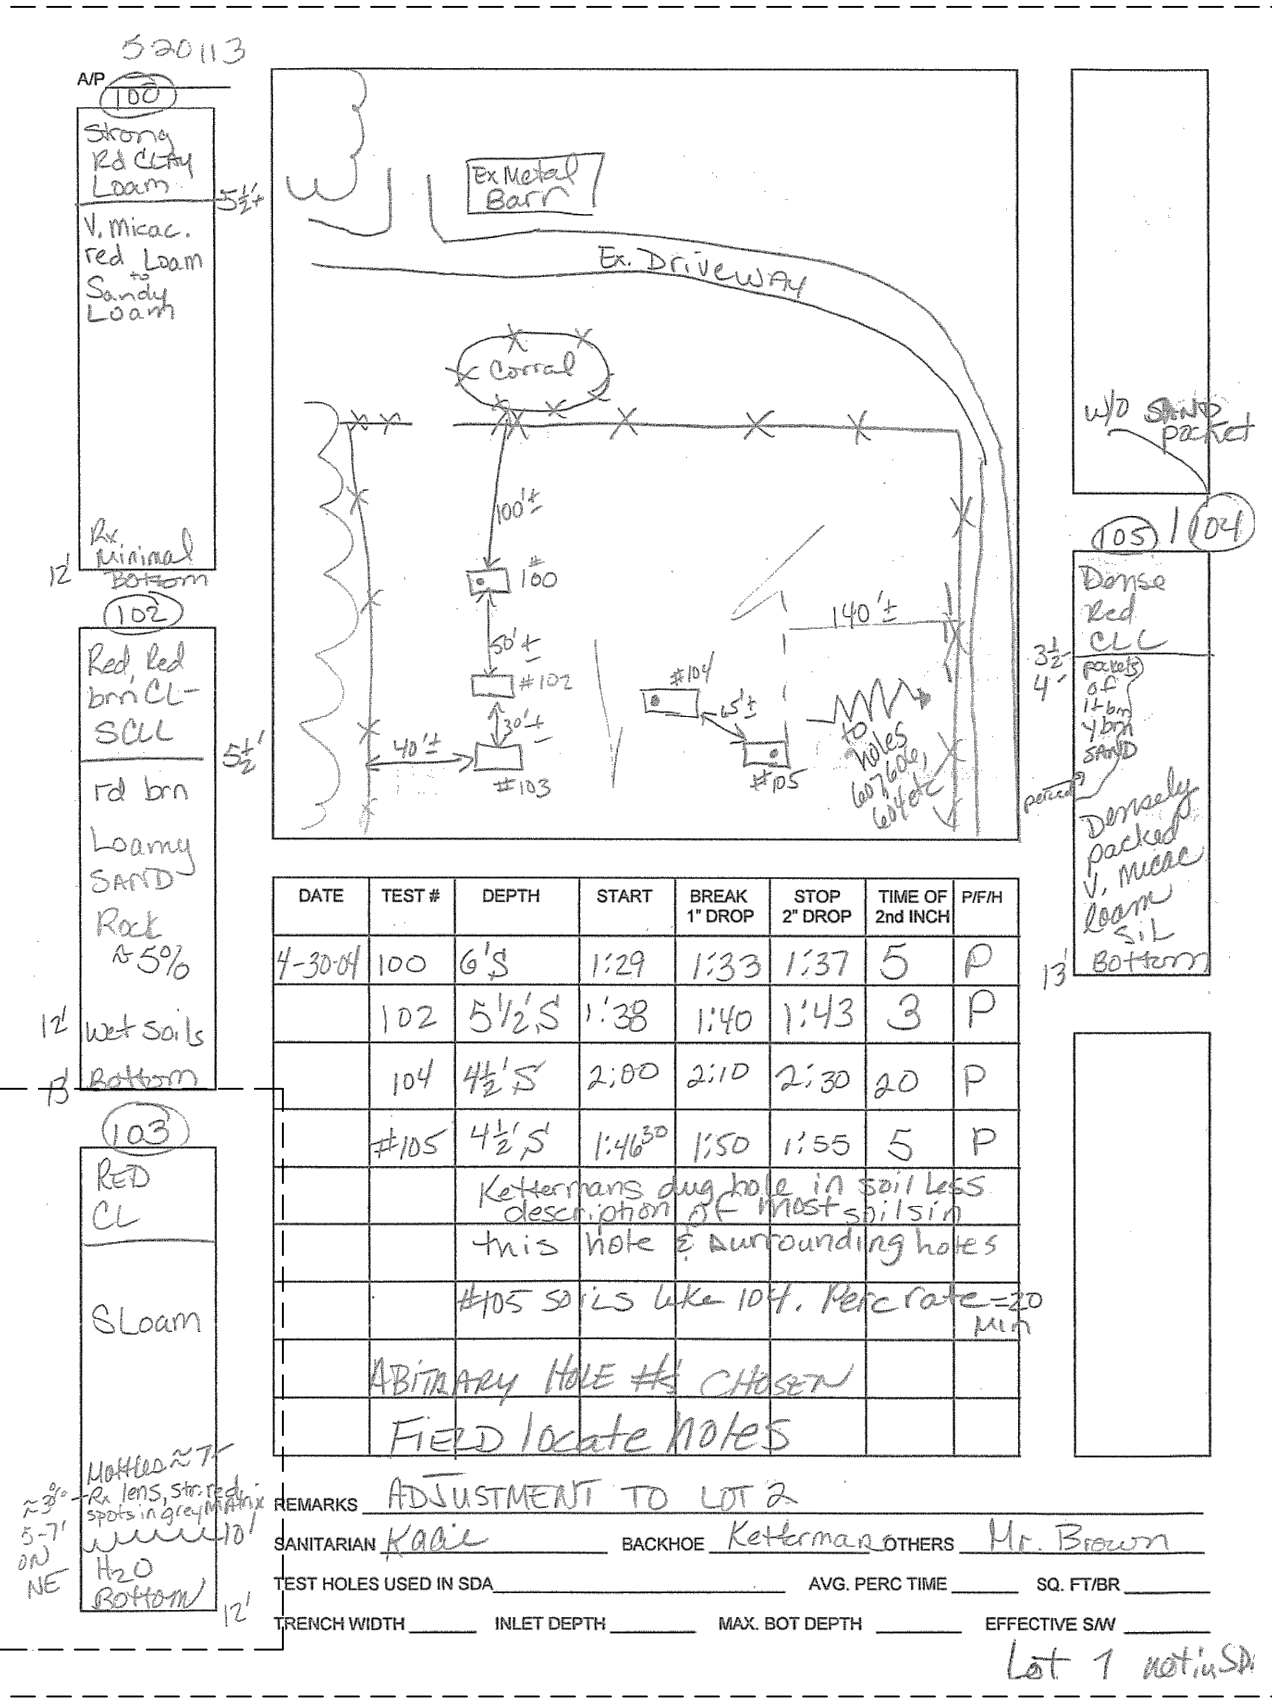 520113
A/P
100
Strong
Rd CLAY
Loam
5½'±
V. Micac.
red Loam
to
Sandy
Loam
Rx
Minimal
12'
Bottom
102
Red, Red
brn CL-
SCLL
5½'
rd brn
Loamy
SAND
Rock
≈5%
12' Wet Soils
13' Bottom
103
RED
CL
SLoam
Mottles ≈ 7'
Rx lens, str. red
spots in grey MAtrix
≈3%
5-7'
ON
NE
10'
H2O
Bottom
12'
Ex Metal
Barn
Ex. DriveWAy
Corral
100'±
#100
50'±
#102
30'±
40'±
#103
#104
65'±
#105
140'±
to
holes
604 etc
w/o SAND
pocket
105 / 104
Dense
Red
CLL
3½-
4'
pockets
of
lt brn
y brn
SAND
Densely
packed
V. Micac
loam
SiL
13' Bottom
DATE TEST # DEPTH START BREAK 1" DROP STOP 2" DROP TIME OF 2nd INCH P/F/H
4-30-04 100 6'S 1:29 1:33 1:37 5 P
102 5½'S 1:38 1:40 1:43 3 P
104 4½'S 2:00 2:10 2:30 20 P
#105 4½'S 1:46³⁰ 1:50 1:55 5 P
Kettermans dug hole in soil less
description of most soils in
this hole & surrounding holes
#105 soils like 104. Perc rate = 20
Min
ABITRARY HOLE #s CHOSEN
FIELD locate holes
REMARKS ADJUSTMENT TO LOT 2
SANITARIAN BACKHOE Ketterman OTHERS Mr. Brown
TEST HOLES USED IN SDA AVG. PERC TIME SQ. FT/BR
TRENCH WIDTH INLET DEPTH MAX. BOT DEPTH EFFECTIVE S/W
Lot 1 not in SDA